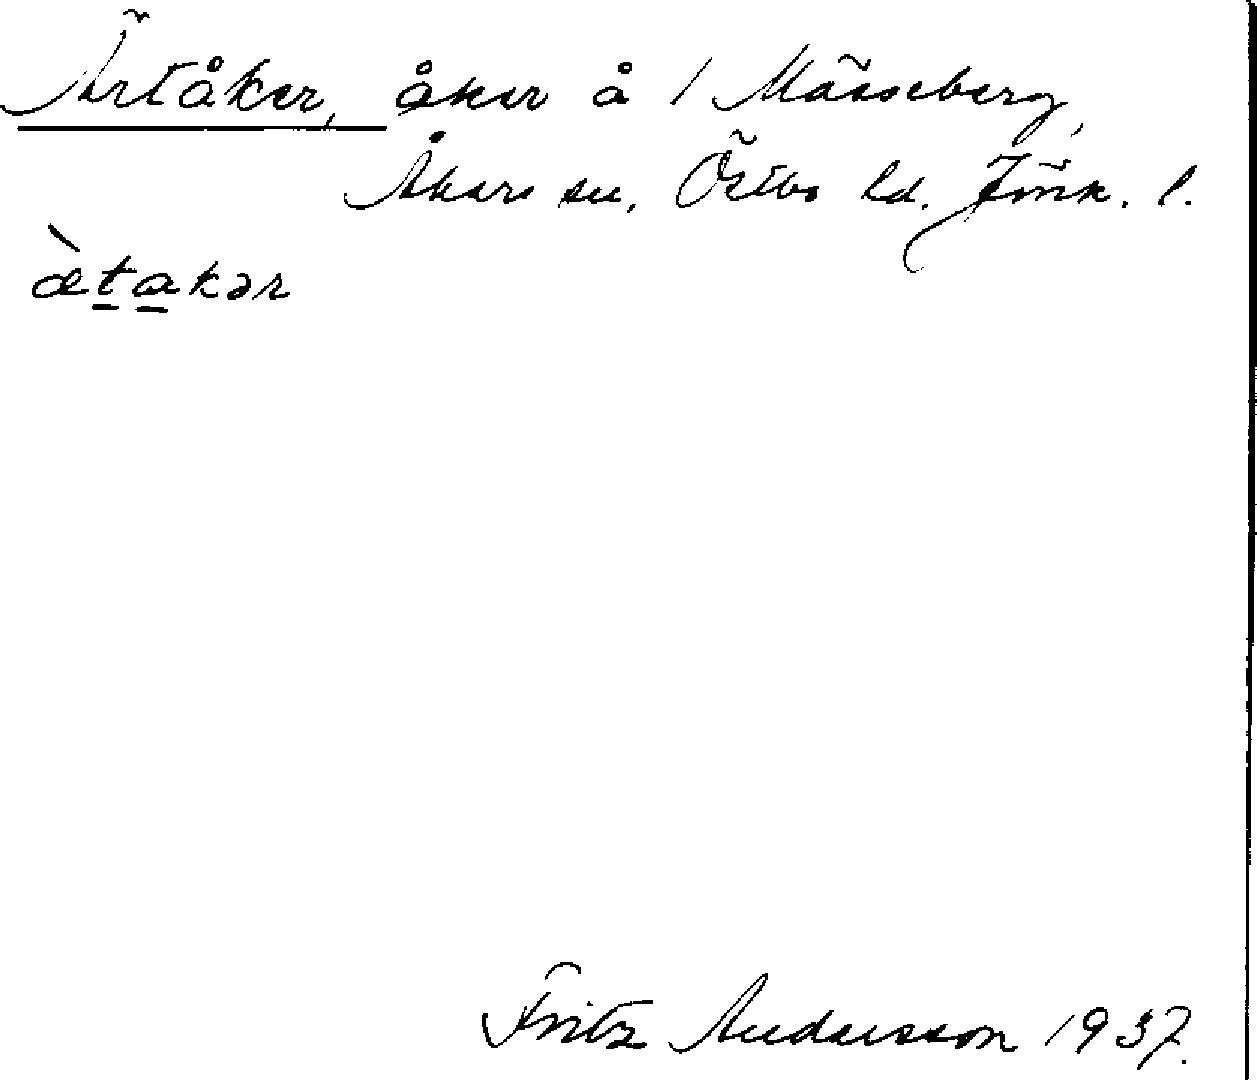 Ärtåker, åker å 1 Mässeberg,
Åkers sn, Östbo hd. Jönk. l.
æ̀ṯa̱kər
Fritz Andersson 1937.